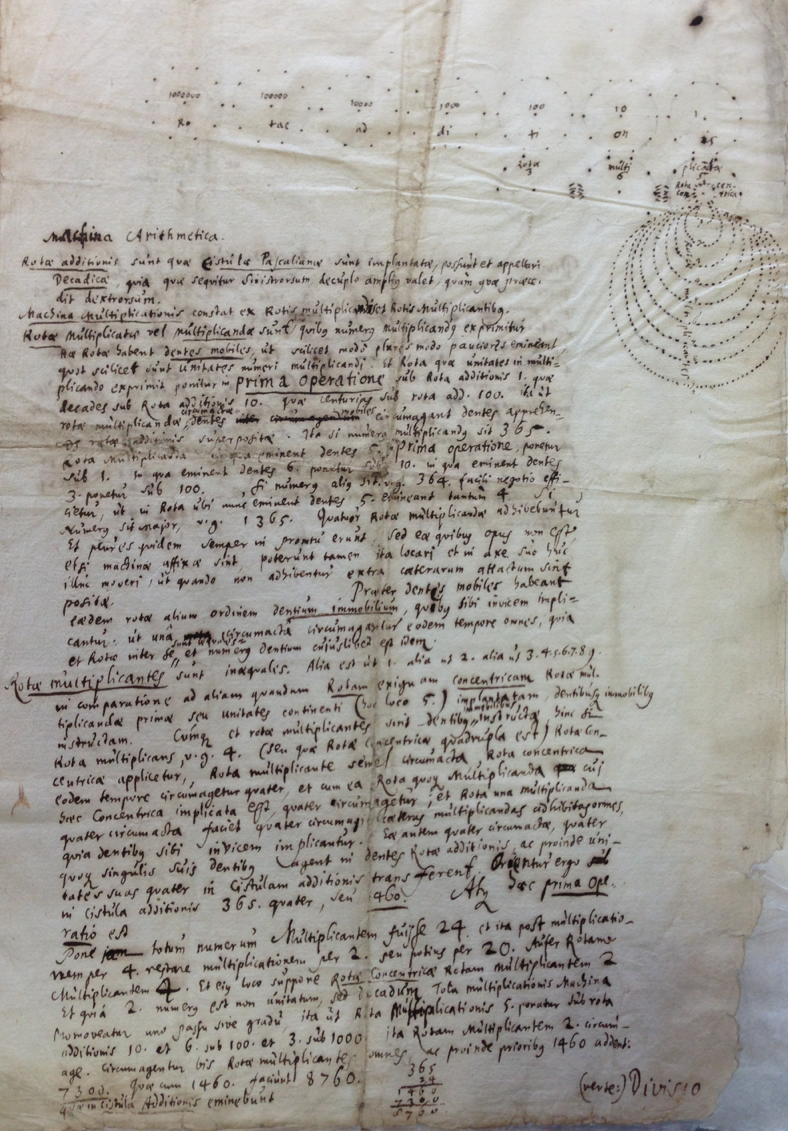 1000000 100000 10000 1000 100 10 1
Ro tae ad di ti on is
Rota multi plicata
3 6 5
Rota concentrica
Machina Arithmetica.
Rotae additionis sunt quae Cistulae Pascalianae sunt implantatae, possunt et appellari
Decadicae, quia quae sequitur sinistrorsum decuplo amplius valet, quam quae praece-
dit dextrorsum.
Machina Multiplicationis constat ex Rotis multiplicandis et Rotis Multiplicantibus.
Rotae Multiplicatae vel multiplicandae sunt quibus numerus multiplicandus exprimitur
Hae Rotae habent dentes mobiles, ut scilicet modo plures modo pauciores emineant
quot scilicet sunt unitates numeri multiplicandi. Et Rota quae unitates in multi-
plicando exprimit ponitur in prima operatione sub Rota additionis 1. quae
decades sub Rota additionis 10. quae centurias sub rota add. 100.
rotae multiplicandae circumactae dentes mobiles circumagant dentes apprehen-
rotae additionis superpositae. Ita si numerus multiplicandus sit 365.
Rota Multiplicanda in qua eminent dentes 5. Prima operatione, ponetur
sub 1. in qua eminent dentes 6. ponetur sub 10. in qua eminent dentes
3. ponetur sub 100. Si numerus alius sit v.g. 364. facili negotio effi-
cietur, ut in Rota ubi nunc eminent dentes 5. emineant tantum 4. Si
numerus sit major, v.g. 1365. Quatuor Rotae multiplicandae adhibebuntur
Et plures quidem semper in promtu erunt, sed ea quibus opus non est
etsi machinae affixae sint, poterunt tamen ita locari et in axe suo huc
illuc moveri, ut quando non adhibentur extra caeterarum attactum sint
positae. Praeter dentes mobiles habeant
eaedem rotae alium ordinem dentium immobilium, quibus sibi invicem impli-
cantur. ut una circumacta circumagantur eodem tempore omnes, quia
et Rotae inter se sunt aequales et numerus dentium cujuslibet est idem.
Rotae multiplicantes sunt inaequales. Alia est ut 1. alia ut 2. alia ut 3.4.5.6.7.8.9.
in comparatione ad aliam quandam Rotam exiguam concentricam Rotae mul-
tiplicandae primae seu unitates continenti (hoc loco 5.) implantatam dentibus immobilibus
instructam. Cumque et rotae multiplicantes sint dentibus immobilibus instructae hinc si
Rota multiplicans v.g. 4. (seu quae Rotae concentricae quadrupla est) Rotae con-
centricae applicetur, Rota multiplicante semel circumacta Rota concentrica
eodem tempore circumagetur quater, et cum ea Rota quoque Multiplicanda cui
haec Concentrica implicata est, quater circumagetur, et Rota una multiplicanda
quater circumacta faciet quater circumagi caeteras multiplicandas adhibitas omnes,
quia dentibus sibi invicem implicantur. Eae autem quater circumactae, quater
quoque singulis suis dentibus agent in dentes Rotae additionis, ac proinde uni-
tates suas quater in Cistulam additionis transferent. Orientur ergo
in cistula additionis 365. quater, seu 1460. Atque haec prima ope-
ratio est
Pone jam totum numerum Multiplicantem fuisse 24. et ita post multiplicatio-
nem per 4. restare multiplicationem per 2. seu potius per 20. Aufer Rotam
Multiplicantem 4. Et ejus loco suppone Rotae Concentricae Rotam multiplicantem 2
Et quia 2. numerus est non unitatum, sed decadum, Tota multiplicationis Machina
promoveatur uno passu sive gradu, ita ut Rota Multiplicationis 5. ponatur sub rota
additionis 10. et 6. sub 100. et 3. sub 1000. ita Rotam Multiplicantem 2. circum-
age. circumagentur bis Rotae multiplicantes omnes, ac proinde prioribus 1460 addent.
7300. Quae cum 1460. faciunt 8760.
quae in Cistula Additionis eminebunt
365
24
1460
7300
8760
(verte:) Divisio